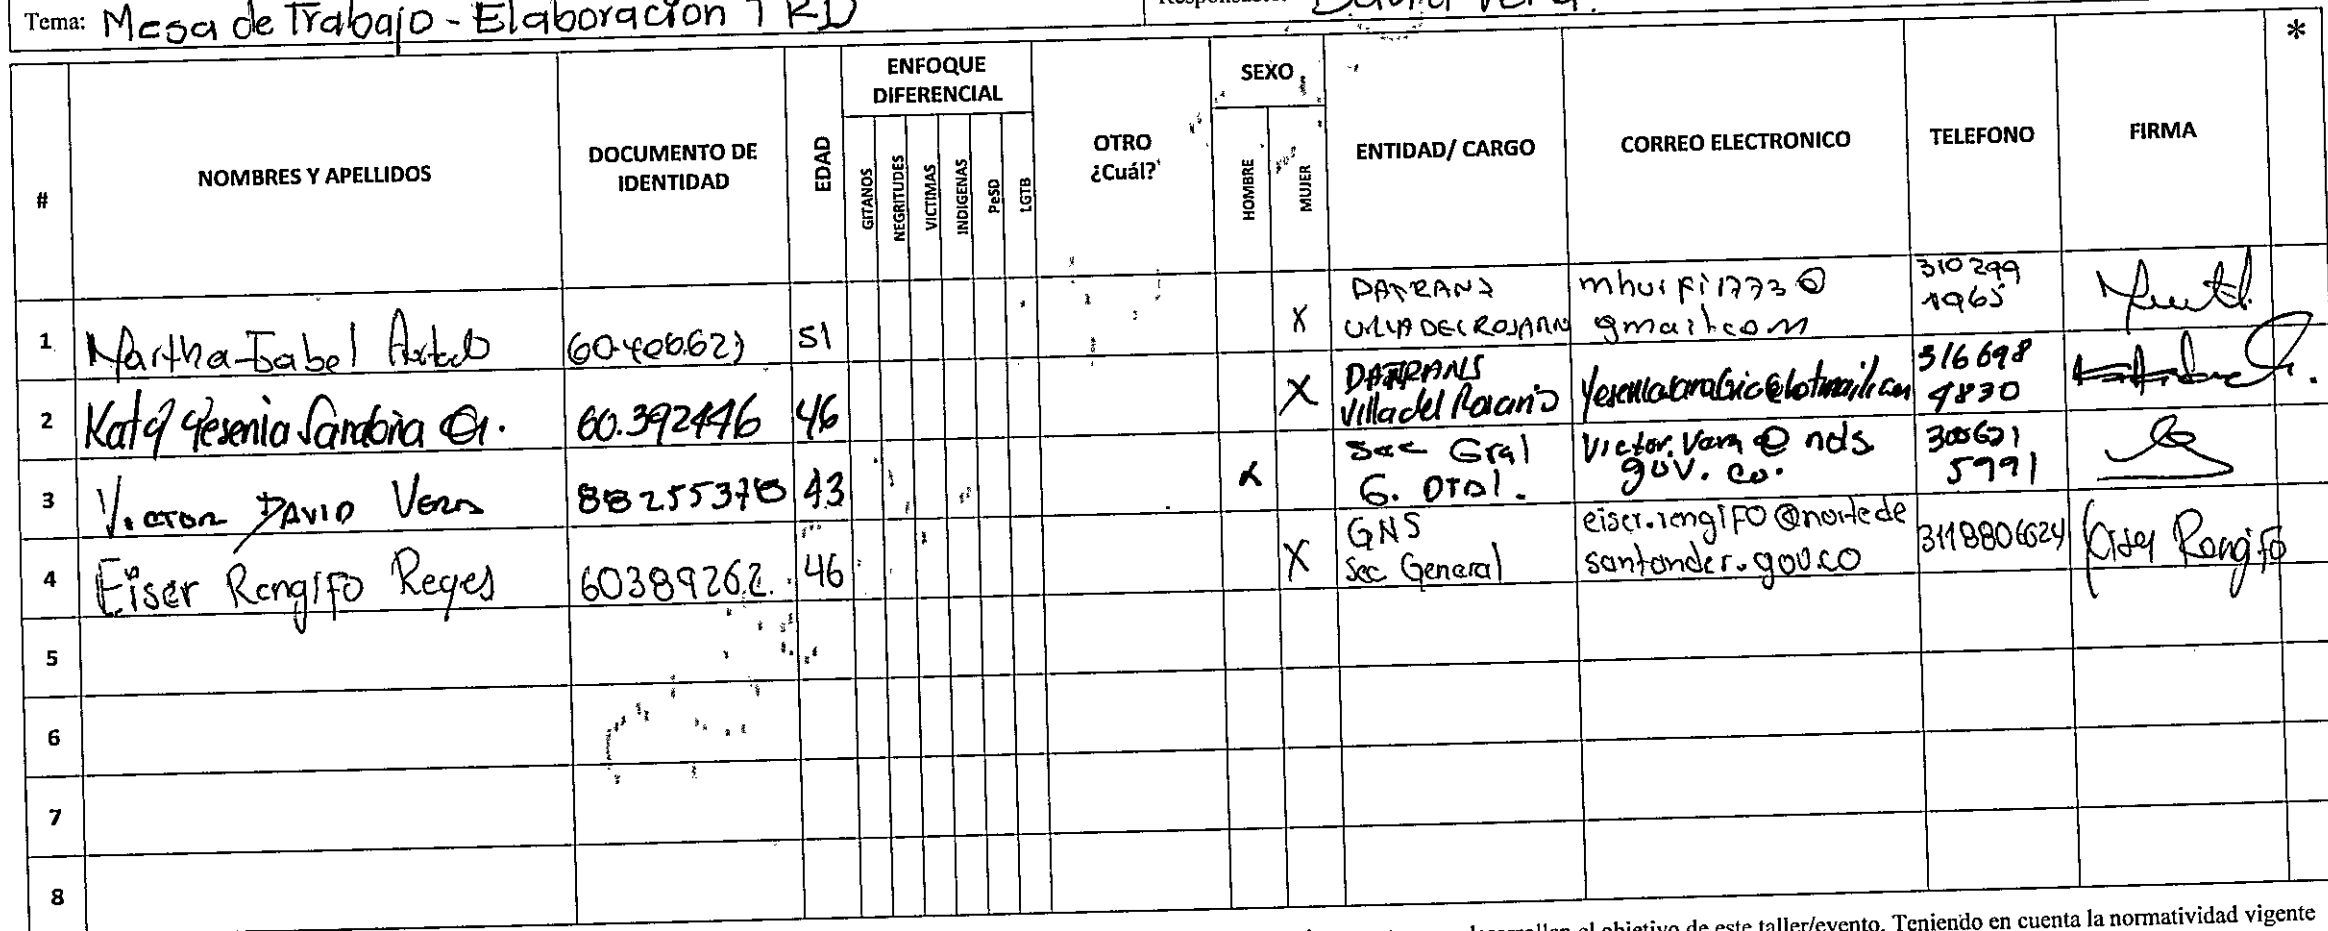 Tema: Mesa de Trabajo - Elaboración TRD
David Vera.
*
# NOMBRES Y APELLIDOS DOCUMENTO DE IDENTIDAD EDAD ENFOQUE DIFERENCIAL GITANOS NEGRITUDES VICTIMAS INDIGENAS PeSD LGTB OTRO ¿Cuál? SEXO HOMBRE MUJER ENTIDAD/ CARGO CORREO ELECTRONICO TELEFONO FIRMA
1 Martha Isabel 51 X DATRANS VILLA DEL ROSARIO gmail.com 310 299 1965
2 Katy Yesenia Sanabria G. 60.392446 46 X DATRANS Villa del Rosario 316 698 4830
3 Victor DAVID Vera 88255378 43 X Sec Gral G. Dtal. Victor.Vera@nds.gov.co. 300621 5991
4 Eiser Rengifo Reyes 60389262. 46 X GNS Sec General eiser.rengifo@nortedesantander.gov.co 3118806624 Eiser Rengifo
5
6
7
8
el objetivo de este taller/evento. Teniendo en cuenta la normatividad vigente